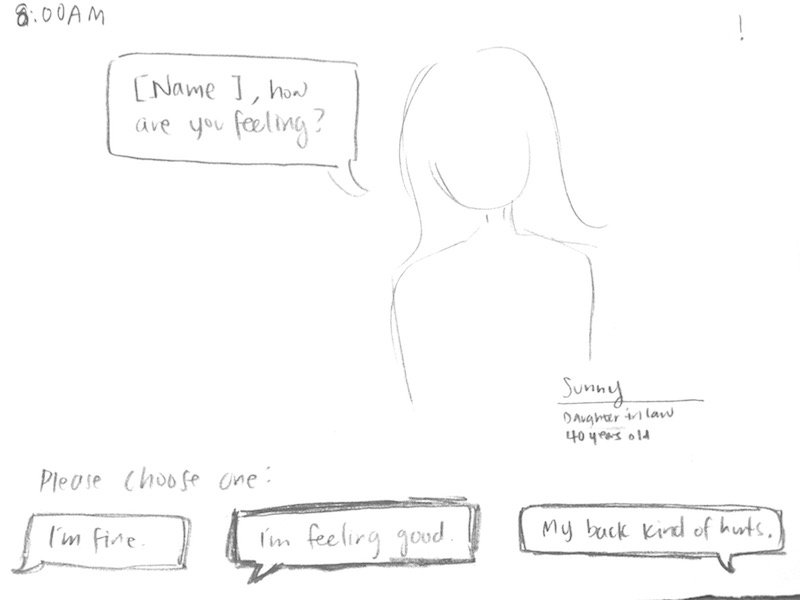 8:00AM
!
[Name], how
are you feeling?
Sunny
Daughter in law
40 years old
Please choose one:
I'm fine.
I'm feeling good.
My back kind of hurts.